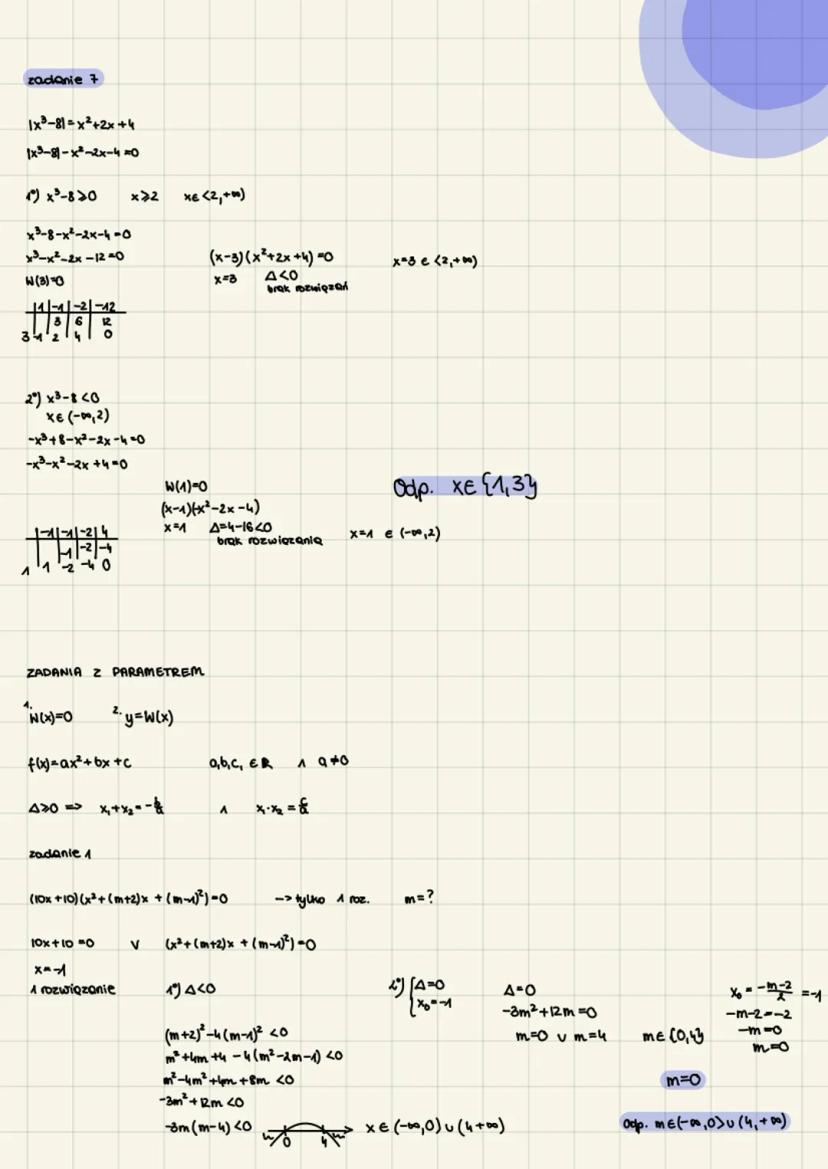 zadanie 7
|x³-8|=x²+2x+4
|x³-8|-x²-2x-4=0
1°) x³-8⩾0 x⩾2 x∈<2,+∞)
x³-8-x²-2x-4=0
x³-x²-2x-12=0 (x-3)(x²+2x+4)=0 x=3 ∈ <2,+∞)
W(3)=0 x=3 Δ<0
brak rozwiązań
|1|-1|-2|-12
3 6 12
3 1 2 4 0
2°) x³-8<0
x∈(-∞,2)
-x³+8-x²-2x-4=0
-x³-x²-2x+4=0
W(1)=0
(x-1)(-x²-2x-4)
x=1 Δ=4-16<0 x=1 ∈ (-∞,2)
brak rozwiązania
Odp. x∈{1,3}
|-1|-1|-2|4
-1|-2|-4
1 -1 -2 -4 0
ZADANIA Z PARAMETREM
1. W(x)=0 2. y=W(x)
f(x)=ax²+bx+c a,b,c, ∈R ∧ a≠0
Δ⩾0 => x₁+x₂=-b/a ∧ x₁·x₂=c/a
zadanie 1
(10x+10)(x²+(m+2)x+(m-1)²)=0 -> tylko 1 roz. m=?
10x+10=0 ∨ (x²+(m+2)x+(m-1)²)=0
x=-1
1 rozwiązanie
1°) Δ<0
(m+2)²-4(m-1)²<0
m²+4m+4-4(m²-2m-1)<0
m²-4m²+4m+8m<0
-3m²+12m<0
-3m(m-4)<0 0 4 x∈(-∞,0)∪(4+∞)
2°) {Δ=0
x₀=-1
Δ=0
-3m²+12m=0
m=0 ∨ m=4 m∈{0,4}
x₀=-m-2/2=-1
-m-2=-2
-m=0
m=0
m=0
Odp. m∈(-∞,0>∪(4,+∞)